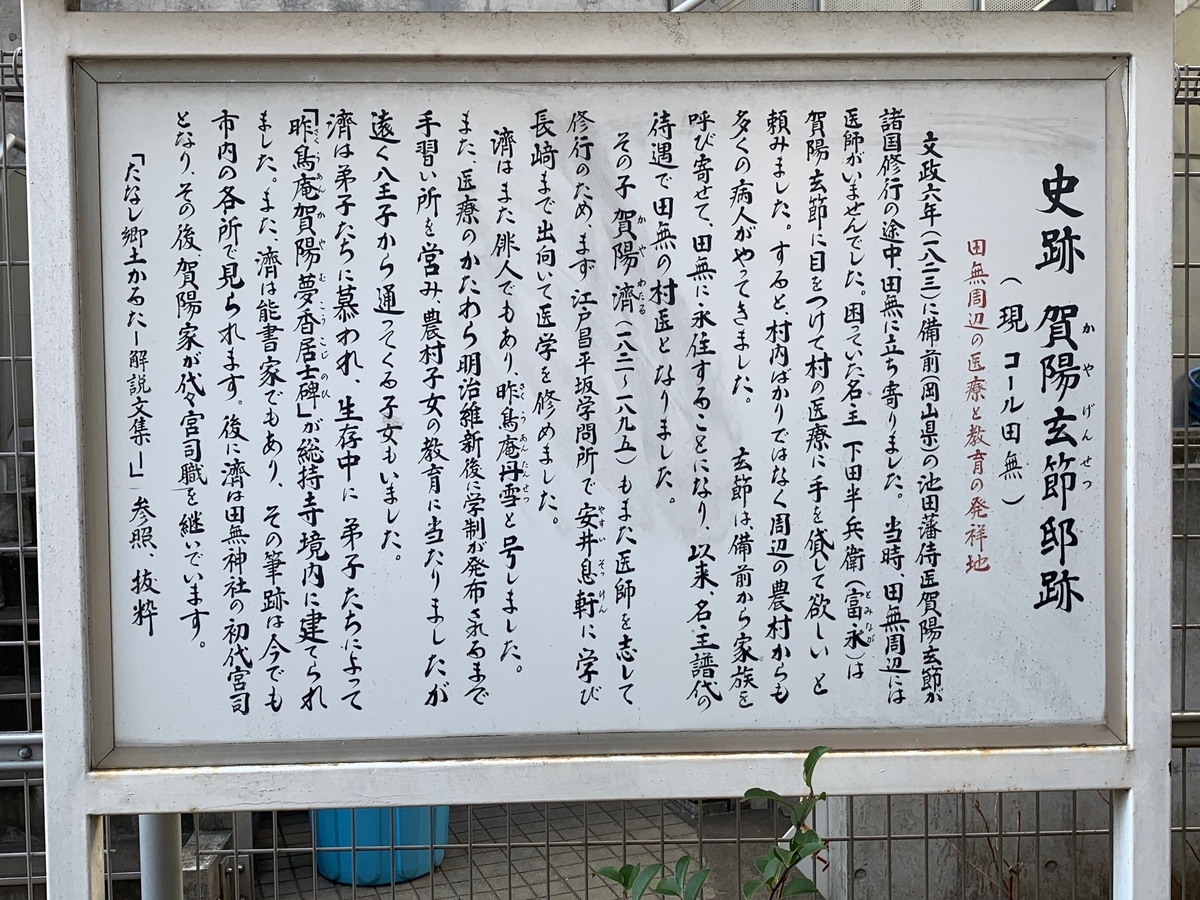 史跡 賀陽玄節邸跡
かや げんせつ
(現 コール田無)
田無周辺の医療と教育の発祥地
文政六年(一八二三)に備前(岡山県)の池田藩侍医賀陽玄節が
諸国修行の途中、田無に立ち寄りました。当時、田無周辺には
医師がいませんでした。困っていた名主 下田半兵衛(富永)は
とみなが
賀陽玄節に目をつけて村の医療に手を貸して欲しいと
頼みました。すると、村内ばかりではなく周辺の農村からも
多くの病人がやってきました。 玄節は備前から家族を
呼び寄せて、田無に永住することになり、以来、名主譜代の
待遇で田無の村医となりました。
その子賀陽濟(一八二一〜一八九五)もまた医師を志して
かや わたる
修行のため、まず江戸昌平坂学問所で安井息軒に学び
やすい そっけん
長崎まで出向いて医学を修めました。
濟はまた俳人でもあり、昨鳥庵丹雪と号しました。
さくうあんたんせつ
また、医療のかたわら明治維新後に学制が発布されるまで
手習い所を営み、農村子女の教育に当たりましたが
遠く八王子から通ってくる子女もいました。
濟は弟子たちに慕われ、生存中に 弟子たちによって
「昨鳥庵賀陽夢香居士碑」が総持寺境内に建てられ
さくうあんかやむこうこじのひ
ました。また、濟は能書家でもあり、その筆跡は今でも
市内の各所で見られます。後に濟は田無神社の初代宮司
となり、その後、賀陽家が代々宮司職を継いでいます。
「たなし郷土かるたー解説文集ー」 参照、抜粋